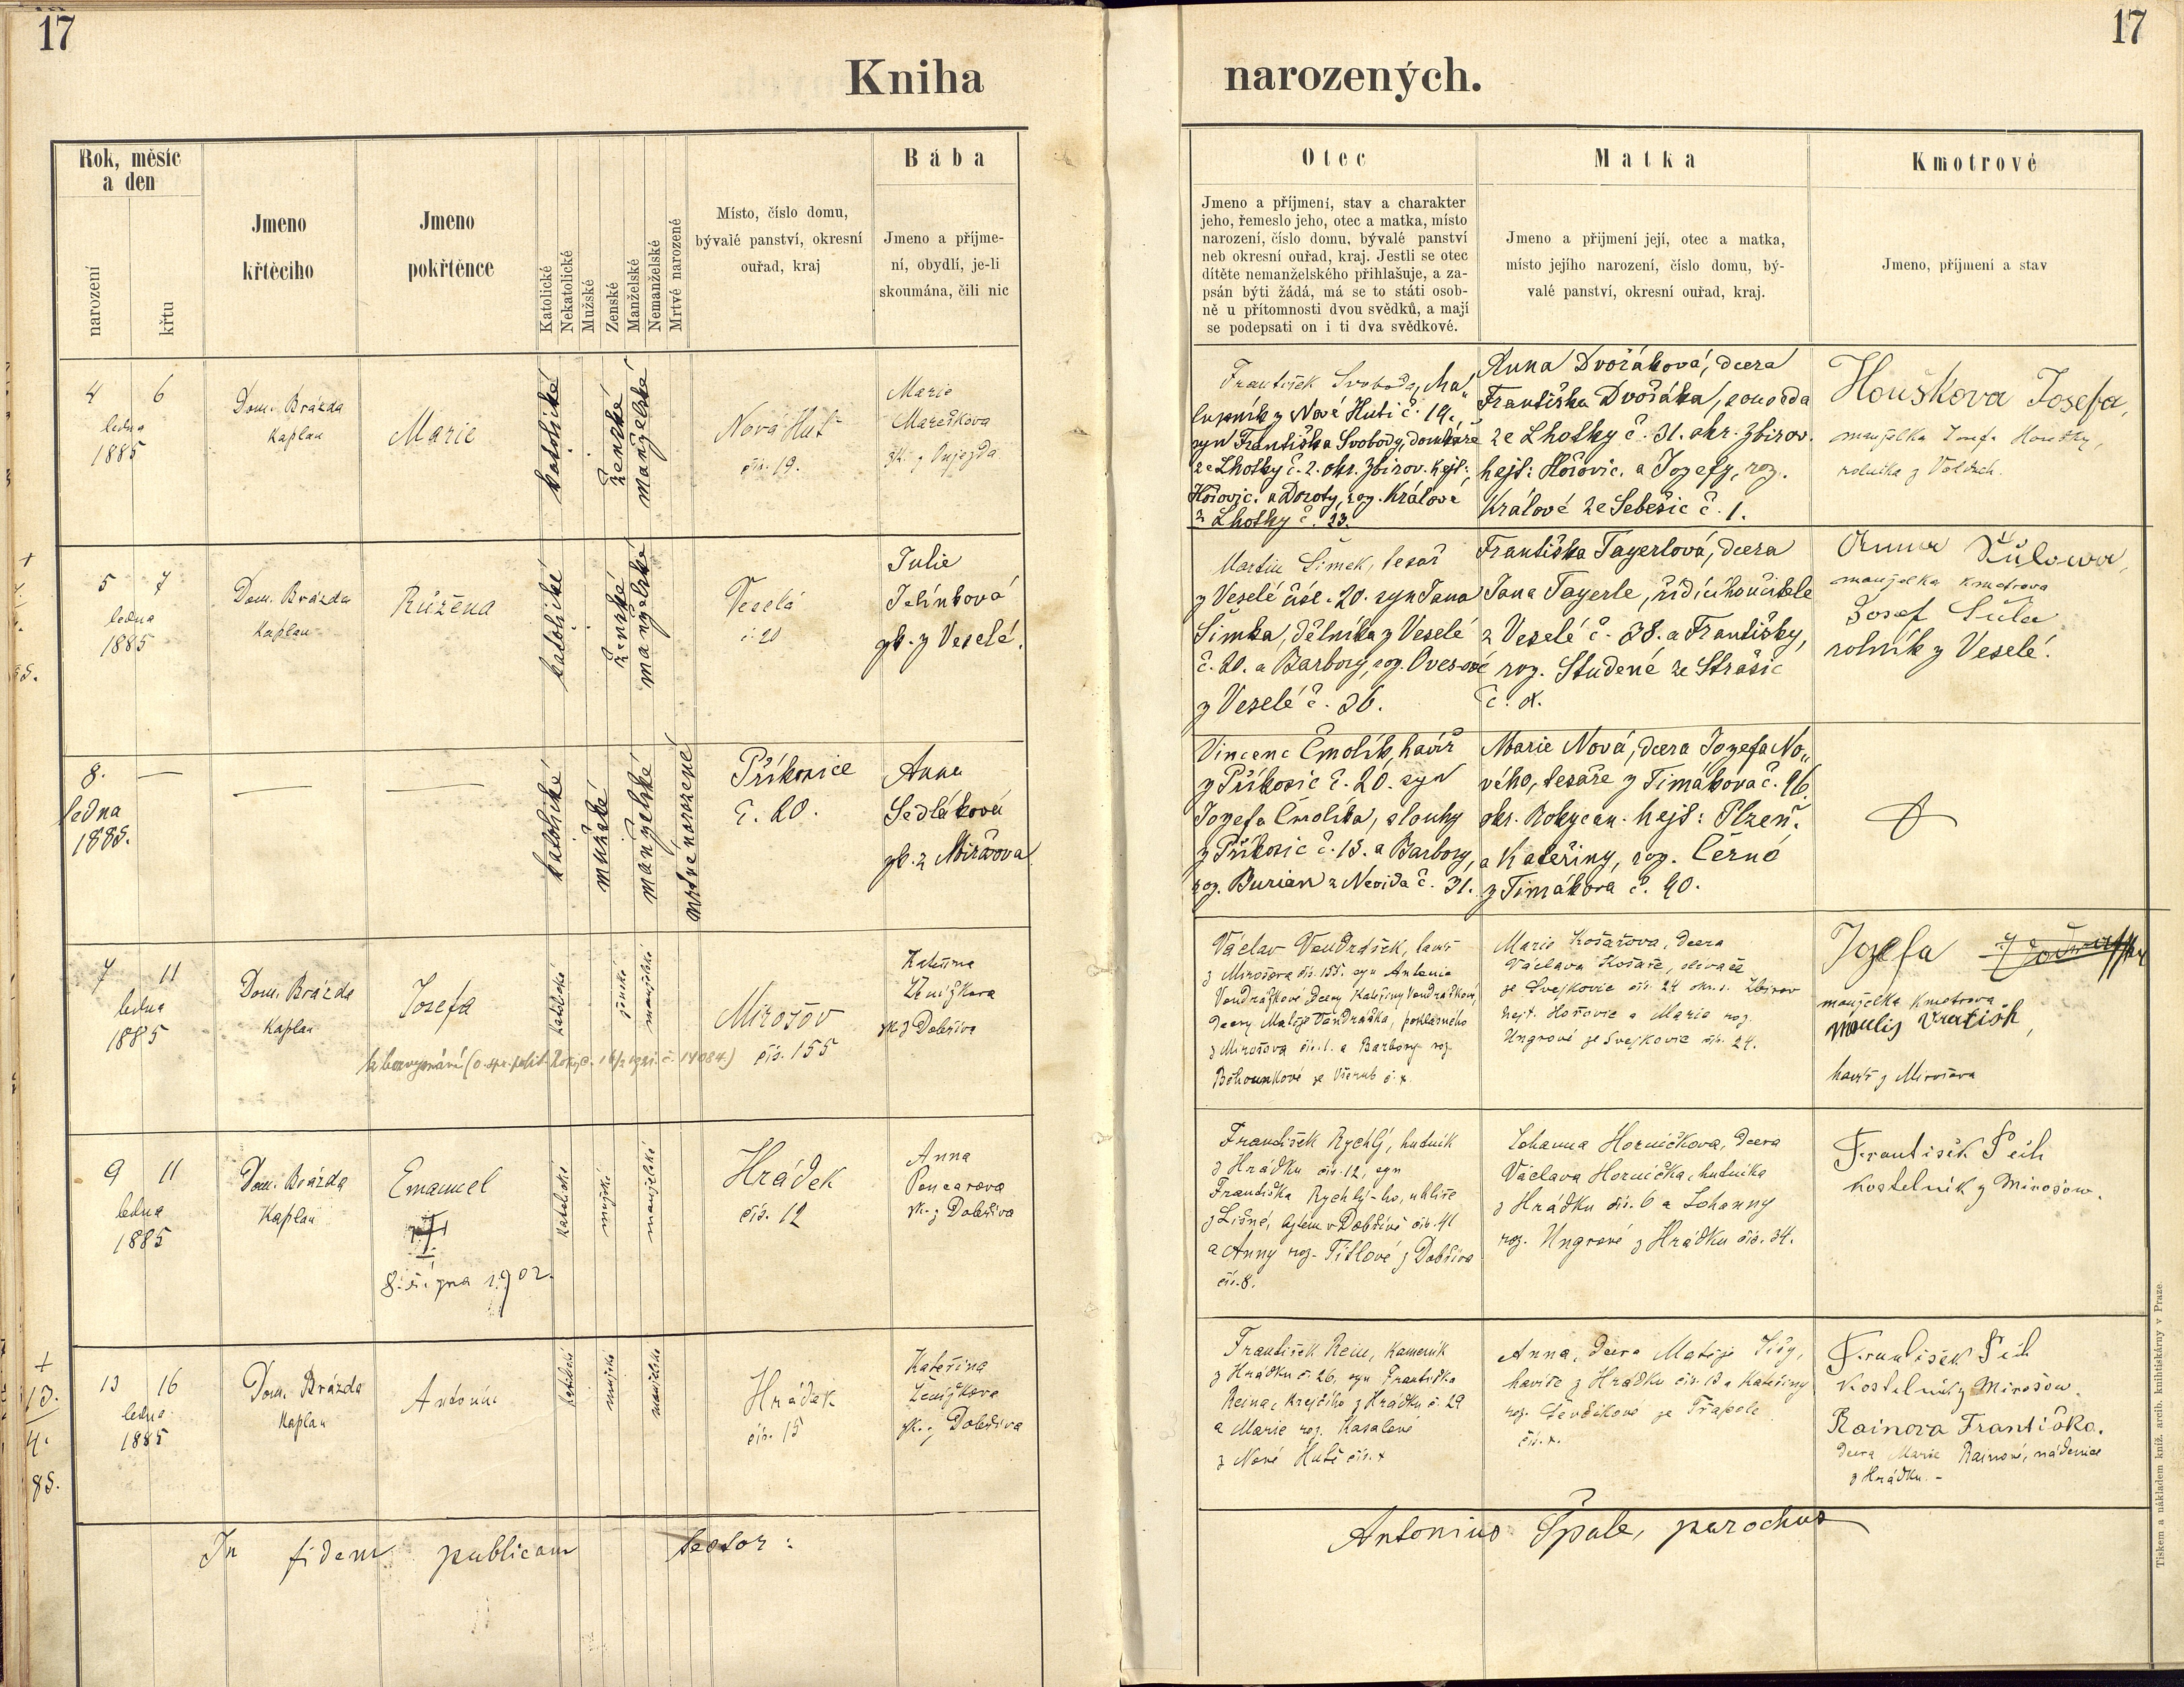 17
17
Kniha narozených.
Rok, měsíc
a den
narození
křtu
Jmeno
křtěcího
Jmeno
pokřtěnce
Katolické
Nekatolické
Mužské
Ženské
Manželské
Nemanželské
Mrtvé narozené
Místo, číslo domu,
bývalé panství, okresní
ouřad, kraj
Bába
Jmeno a příjme-
ní, obydlí, je-li
skoumána, čili nic
Otec
Jmeno a příjmení, stav a charakter
jeho, řemeslo jeho, otec a matka, místo
narození, číslo domu, bývalé panství
neb okresní ouřad, kraj. Jestli se otec
dítěte nemanželského přihlašuje, a za-
psán býti žádá, má se to státi osob-
ně u přítomnosti dvou svědků, a mají
se podepsati on i ti dva svědkové.
Matka
Jmeno a přijmení její, otec a matka,
místo jejího narození, číslo domu, bý-
valé panství, okresní ouřad, kraj.
Kmotrové
Jmeno, příjmení a stav
4 6
ledna
1885
Dom. Brázda
Kaplan
Marie
katolické
ženské
manželské
Nová Huť
čís. 19.
Marie
Marešková
zk. z Oujezda
František Svoboda, cha-
lupník z Nové Huti č. 19.,
syn Františka Svobody, domkáře
ze Lhotky č. 2. okr. Zbirov. hejt:
Hořovic. a Doroty, roz. Králové
z Lhotky č. 23.
Anna Dvořáková, dcera
Františka Dvořáka, souseda
ze Lhotky č. 31. okr. Zbirov.
hejt: Hořovic. a Jozefy, roz.
Králové ze Sebešic č. 1.
Houškova Josefa,
manželka Josefa Houšky,
rolníka z Volduch.
5 7
ledna
1885
Dom. Brázda
Kaplan
Růžena
katolické
ženské
manželské
Veselá
č. 20
Julie
Jelínková
zk. z Veselé.
Martin Šimek, tesař
z Veselé čísl. 20. syn Jana
Šimka, dělníka z Veselé
č. 20. a Barbory, roz. Ovesové
z Veselé č. 36.
Františka Tayerlová, dcera
Jana Tayerle, řídícího učitele
z Veselé č. 38. a Františky,
roz. Studené ze Strašic
č. x.
Anna Šůlowa,
manželka kmotrova
Josef Šula
rolník z Veselé.
8. —
ledna
1885.
—
—
katolické
mužské
manželské
mrtvé narozené
Příkosice
č. 20.
Anna
Sedláková
zk. z Mirošova
Vincenc Čmolík, havíř
z Příkosic č. 20. syn
Jozefa Čmolíka, slouhy
z Příkosic č. 13. a Barbory,
roz. Burian z Nevida č. 31.
Marie Nová, dcera Jozefa No-
vého, tesaře z Timákova č. 96.
okr. Rokycan. hejt: Plzeň.
a Kateřiny, roz. Černé
z Timákova č. 40.
7 11
ledna
1885
Dom. Brázda
Kaplan
Josefa
katolické
ženské
manželské
Mirošov
čís. 155
Kateřina
Ženíškova
zk. z Dobříva
Václav Vondrášek, havíř
z Mirošova čís. 155. syn Antonie
Vondráškové dcery Kateřiny Vondráškové,
dcery Matěje Vondráška,
z Mirošova čís. 1. a Barbory roz.
Běhounkové ze Všerub č. x.
Marie Košařova, dcera
Václava Košaře,
ze Svejkovic čís. 24 okr. Zbirov
hejt. Hořovic a Marie roz.
Ungrové ze Svejkovic čís. 24.
Jozefa
manželka kmotrova
havíř z Mirošova
9 11
ledna
1885
Dom. Brázda
Kaplan
Emanuel
8. srpna 1902.
katolické
mužské
manželské
Hrádek
čís. 12
Anna
Poncarova
zk. z Dobříva
František Rychlý, hutník
z Hrádku čís. 12, syn
Františka Rychlý-ho, uhlíře
z Lišné, bytem v Dobřívě čís. 41
a Anny roz. Titlové z Dobříva
čís. 8.
Johanna Horničkova, dcera
Václava Hornička, hutníka
z Hrádku čís. 6 a Johanny
roz. Ungrové z Hrádku čís. 34.
František Peih
kostelník z Mirošow.
13.
4.
85.
13 16
ledna
1885
Dom. Brázda
Kaplan
Antonín
katolické
mužské
manželské
Hrádek
čís. 15
Kateřina
Ženíškova
zk. z Dobříva
František Rein, kameník
z Hrádku č. 26, syn Františka
Reina, krejčího z Hrádku č. 29
a Marie roz. Kasalové
z Nové Huti čís. x
Anna, dcera Matěje
havíře z Hrádku čís. 13 a Kateřiny
roz. Ševčíkové ze Trapole
čís. x.
František Peih
kostelník z Mirošow.
Rainova Františka.
dcera Marie Rainové, nádenice
z Hrádku. -
In fidem publicam testor: Antonius Špale, parochus
Tiskem a nákladem kníž. arcib. knihtiskárny v Praze.